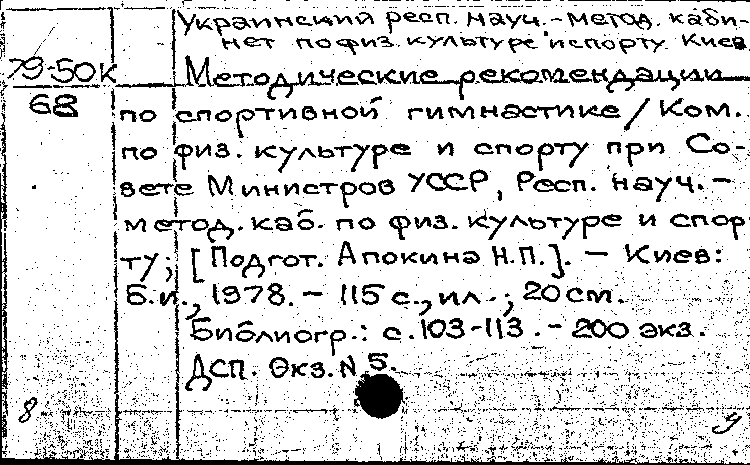 Украинский респ. науч.-метод. каби-
нет по физ. культуре и спорту. Киев
79-50К Методические рекомендации
68 по спортивной гимнастике / Ком.
по физ. культуре и спорту при Со-
вете Министров УССР, Респ. науч.-
метод. каб. по физ. культуре и спор
ту; [Подгот. Апокина Н.П.]. - Киев:
Б.и., 1978. - 115 с., ил.; 20 см.
Библиогр.: с.103-113. - 200 экз.
ДСП. Экз. N 5.
8